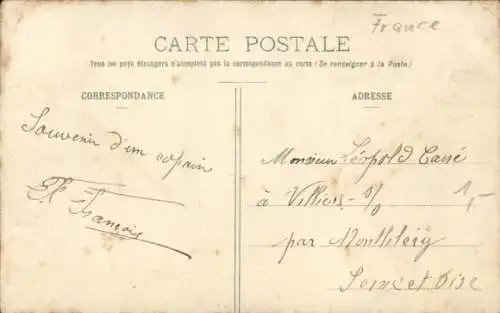 France
CARTE POSTALE
Tous les pays étrangers n'acceptent pas la correspondance au recto (Se renseigner à la Poste)
CORRESPONDANCE
ADRESSE
Souvenir d'un copain
François
Monsieur Léopold Cassé
à Villiers s/o
par Montlhéry
Seine et Oise
1,-